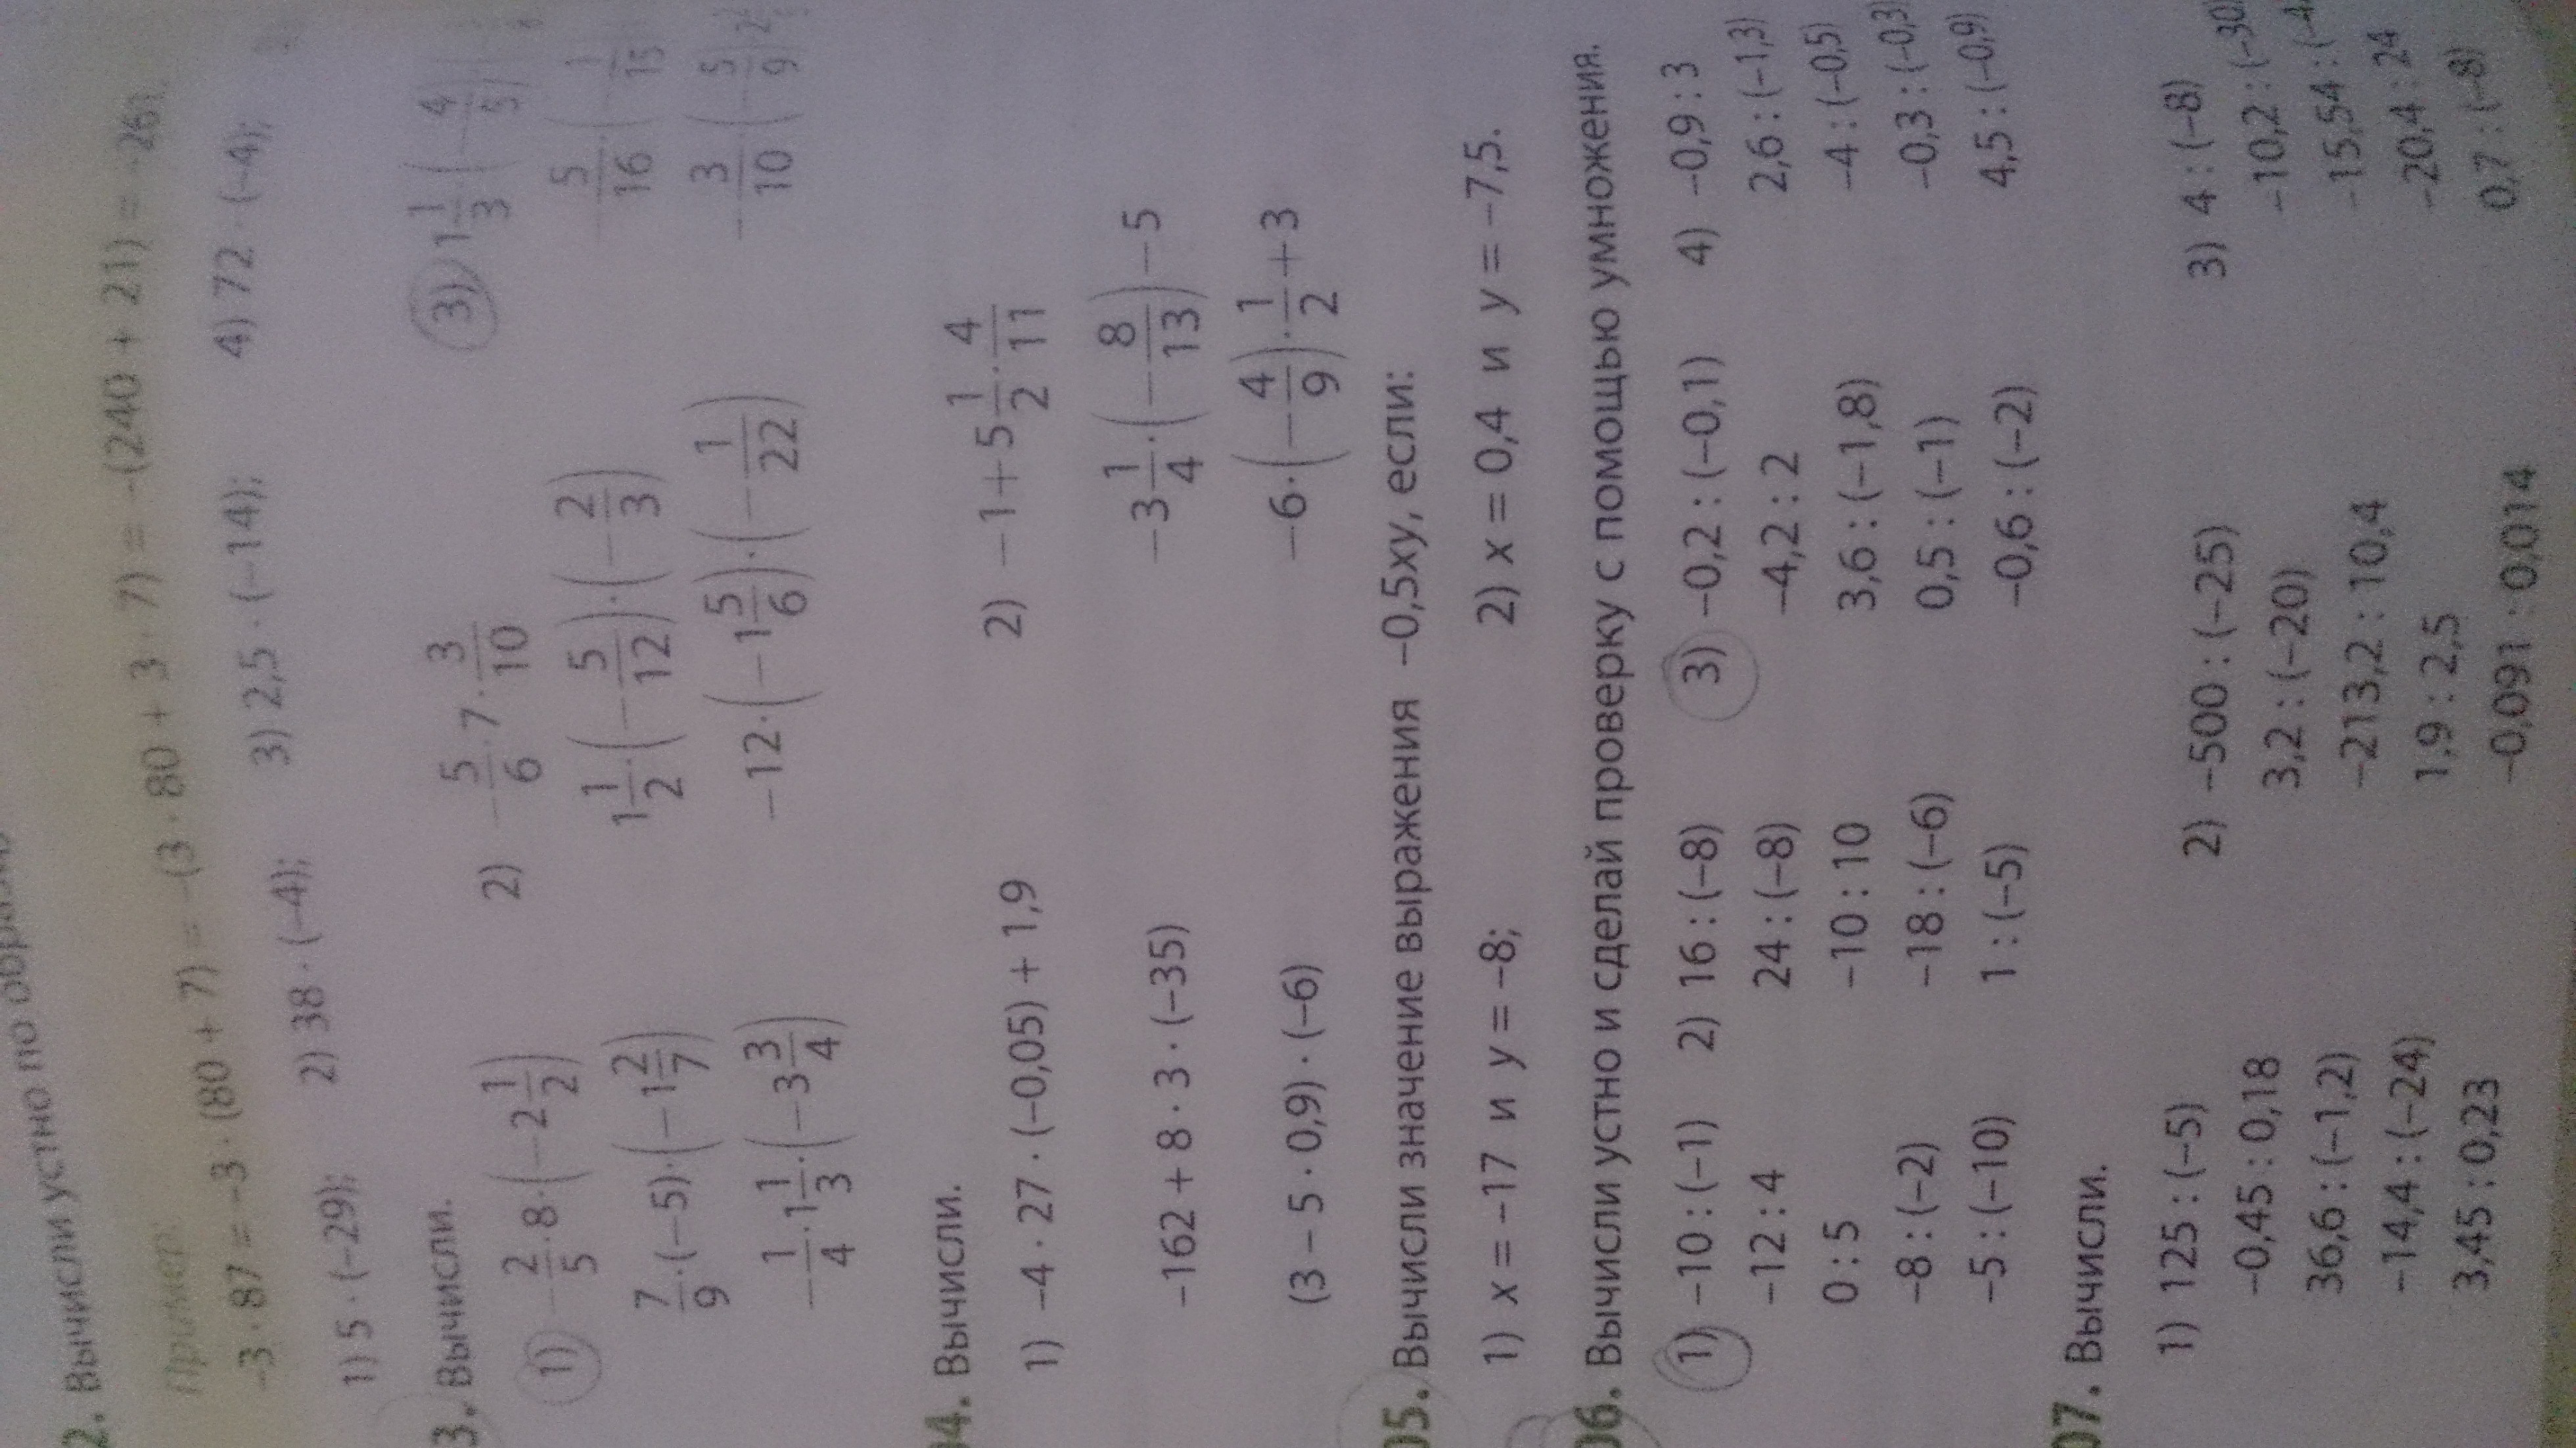 2. Вычисли устно по
Пример:
−3 · 87 = −3 · (80 + 7) = −(3 · 80 + 3 · 7) = −(240 + 21) = −261.
1) 5 · (−29); 2) 38 · (−4); 3) 2,5 · (−14); 4) 72 · (−4);
3. Вычисли.
1) −2/5 · 8 · (−2 1/2) 2) −5/6 · 7 · 3/10 3) 1 1/3 · (−4/5) ·
7/9 · (−5) · (−1 2/7) 1 1/2 · (−5/12) · (−2/3) −5/16 · (−1/15
−1/4 · 1 1/3 · (−3 3/4) −12 · (−1 5/6) · (−1/22) −3/10 · (−5/9
04. Вычисли.
1) −4 · 27 · (−0,05) + 1,9 2) −1 + 5 1/2 · 4/11
−162 + 8 · 3 · (−35) −3 1/4 · (−8/13) − 5
(3 − 5 · 0,9) · (−6) −6 · (−4/9) · 1/2 + 3
05. Вычисли значение выражения −0,5xy, если:
1) x = −17 и y = −8; 2) x = 0,4 и y = −7,5.
06. Вычисли устно и сделай проверку с помощью умножения.
1) −10 : (−1) 2) 16 : (−8) 3) −0,2 : (−0,1) 4) −0,9 : 3
−12 : 4 24 : (−8) −4,2 : 2 2,6 : (−1,3)
0 : 5 −10 : 10 3,6 : (−1,8) −4 : (−0,5)
−8 : (−2) −18 : (−6) 0,5 : (−1) −0,3 : (−0,3)
−5 : (−10) 1 : (−5) −0,6 : (−2) 4,5 : (−0,9)
07. Вычисли.
1) 125 : (−5) 2) −500 : (−25) 3) 4 : (−8)
−0,45 : 0,18 3,2 : (−20) −10,2 : (−30)
36,6 : (−1,2) −213,2 : 10,4 −15,54 : (−4
−14,4 : (−24) 1,9 : 2,5 −20,4 : 24
3,45 : 0,23 −0,091 : 0,014 0,7 : (−8)